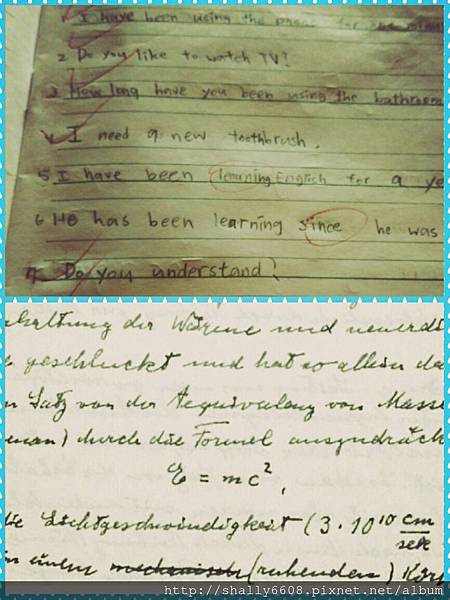 1 I have been using the phone for
2 Do you like to watch TV?
3 How long have you been using the bathroom
4 I need a new toothbrush.
5 I have been learning English for a ye
6 He has been learning since he was
7 Do you understand?
haltung der Wärme und neuerdi
geschluckt und hat so allein da
n Satz von der Aequivalenz von Masse
durch die Formel auszudrück
E = mc²,
die Lichtgeschwindigkeit (3 · 10¹⁰ cm/sek
in einem mechanischen (ruhenden) Kör
http://shally6608.pixnet.net/album